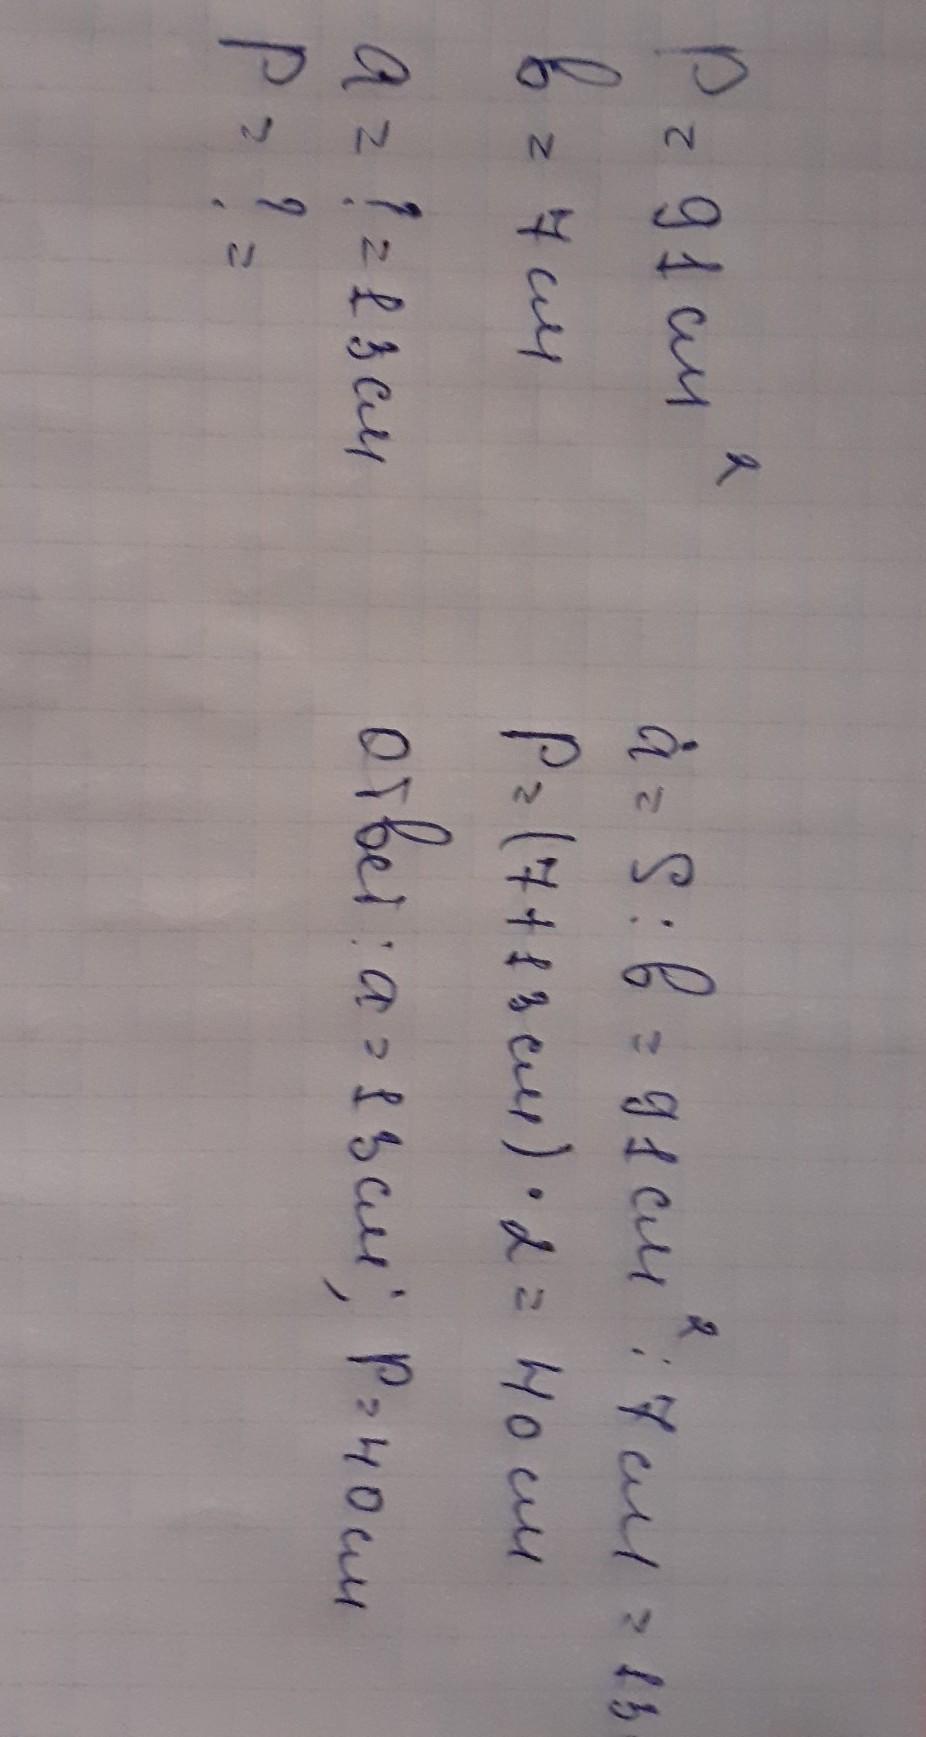 P = 91 см²
в = 7 см
a = ? = 13 см
P = ? =
a = S : в = 91 см² : 7 см = 13
P = (7+13 см) · 2 = 40 см
ответ: а = 13 см; P = 40 см